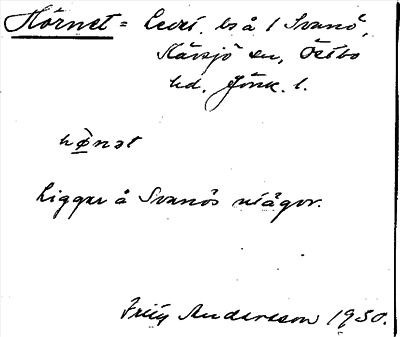 Hörnet = Lect. bs å 1 Svanö,
Kävsjö sn, Östbo
hd. Jönk. l.
hø̀nət
Ligger å Svanös utägor.
Frity Andersson 1930.